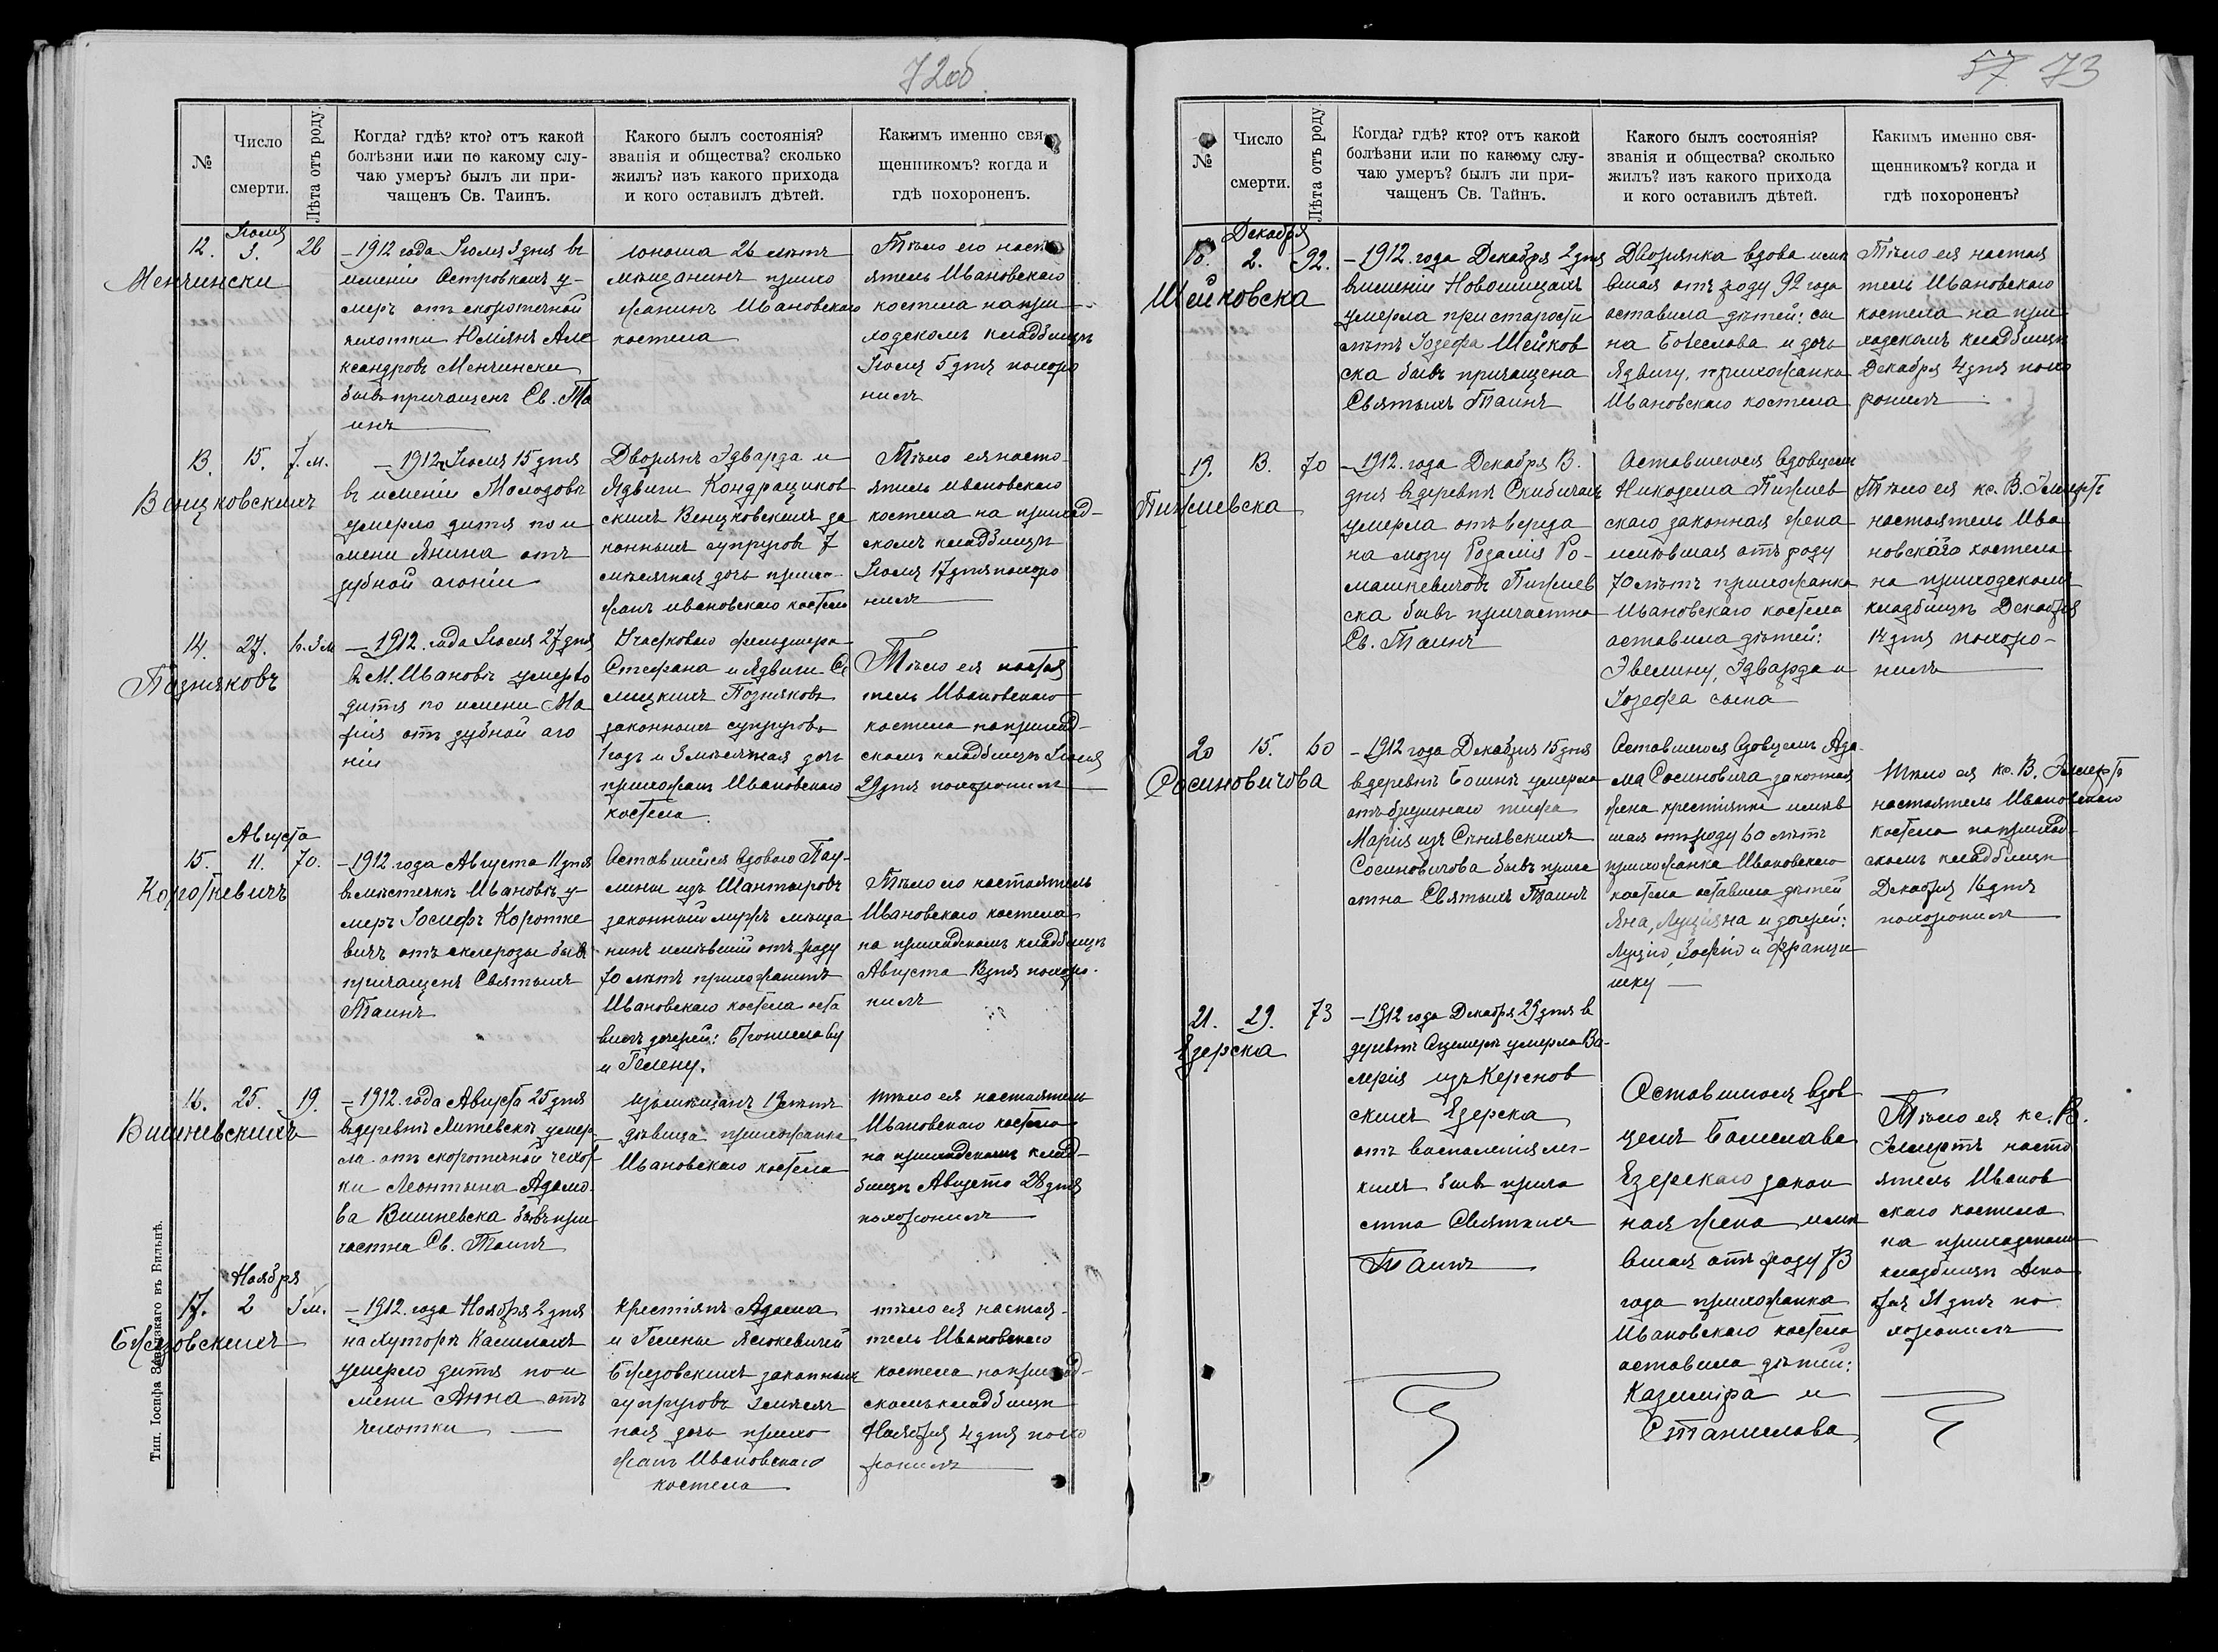 72об.
№
Число
смерти.
Лѣта отъ роду.
Когда? гдѣ? кто? отъ какой
болѣзни или по какому слу-
чаю умеръ? былъ ли при-
чащенъ Св. Таинъ.
Какого былъ состоянія?
званія и общества? сколько
жилъ? изъ какого прихода
и кого оставилъ дѣтей.
Какимъ именно свя-
щенникомъ? когда и
гдѣ похороненъ.
12.
Іюля
3.
26
Менчински
–1912 года Іюля 3 дня въ
имѣніи Островкахъ у-
меръ отъ скоротечной
чахотки Юліянъ Але
ксандровъ Менчински
бывъ причащенъ Св. Та
инъ
юноша 26 лѣтъ
мѣщанинъ прихо
жанинъ Ивановскаго
костела
Тѣло его насто
ятель Ивановскаго
костела на при-
ходскомъ кладбищѣ
Іюля 5 дня похоро
нилъ
13.
15.
7. м.
Венцковскихъ
–1912 Іюля 15 дня
въ имѣніи Молодовѣ
умерло дитя по и
мени Янина отъ
зубной агоніи
Дворянъ Эдварда и
Ядвиги Кондрациков
скихъ Венцковскихъ за
конныхъ супруговъ 7
мѣсячная дочь прихо-
жанъ Ивановскаго костела
Тѣло ея насто-
ятель Ивановскаго
костела на приход-
скомъ кладбищѣ
Іюля 17 дня похоро
нилъ
14.
27.
1г. 3м
Позняковъ
–1912. года Іюля 27 дня
въ М. Ивановѣ умерло
дитя по имени Ма
рія отъ зубной аго
ніи
Участковаго фельдшера
Стефана и Ядвиги Се
лицкихъ Позняковъ
законныхъ супруговъ
1 годъ и 3 мѣсячная дочь
прихожанъ Ивановскаго
костела.
Тѣло ея настоя
тель Ивановскаго
костела на приход-
скомъ кладбищѣ Іюля
29 дня похоронилъ
15.
Августа
11.
70.
Короткевичъ
–1912. года Августа 11 дня
въ мѣстечкѣ Ивановѣ у-
меръ Іосифъ Коротке
вичъ отъ склерозы бывъ
причащенъ Святыхъ
Таинъ
Оставшейся вдовою Пау-
лины изъ Шантыровъ
законный мужъ мѣща
нинъ имѣвшій отъ роду
70 лѣтъ прихожанинъ
Ивановскаго костела оста
вилъ дочерей: Брониславу
и Гелену.
Тѣло его настоятель
Ивановскаго костела
на приходскомъ кладбищѣ
Августа 13 дня похоро-
нилъ
16.
25.
19.
Вишневскихъ
–1912. года Августа 25 дня
въ деревнѣ Литевскѣ умер
ла отъ скоротечной чахот
ки Леонтына Адамо
ва Вишневска бывъ при
частна Св. Таинъ
изъ мѣщанъ 19 лѣтъ
дѣвица прихожанка
Ивановскаго костела
тѣло ея настоятель
Ивановскаго костела
на приходскомъ клад-
бищѣ Августа 28 дня
похоронилъ
17.
Ноября
2
3 м.
Брезовскихъ
–1912. года Ноября 2 дня
на хуторѣ Калилахъ
умерло дитя по и
мени Анна отъ
чахотки
крестіянъ Адама
и Гелены Ясюкевичей
Брезовскихъ законныхъ
супруговъ 3 мѣсяч
ная дочь прихо
жанъ Ивановскаго
костела
тѣло ея настоя-
тель Ивановскаго
костела на приход-
скомъ кладбищѣ
Ноября 4 дня похо
ронилъ
Тип. Іосифа Завадзкаго въ Вильнѣ.
57 73
№
Число
смерти.
Лѣта отъ роду
Когда? гдѣ? кто? отъ какой
болѣзни или по какому слу-
чаю умеръ? былъ ли при-
чащенъ Св. Тайнъ.
Какого былъ состоянія?
званія и общества? сколько
жилъ? изъ какого прихода
и кого оставилъ дѣтей.
Какимъ именно свя-
щенникомъ? когда и
гдѣ похороненъ?
18.
Декабря
2.
92.
Шейковска
–1912. года Декабря 2 дня
въ имѣніи Новошицахъ
умерла при старости
лѣтъ Іозефа Шейков
ска бывъ причащена
Святыхъ Таинъ
Дворянка вдова имѣ
вшая отъ роду 92 года
оставила дѣтей: сы
на Болеслава и дочь
Ядвигу, прихожанка
Ивановскаго костела
Тѣло ея настоя
тель Ивановскаго
костела на при
ходскомъ кладбищѣ
Декабря 4 дня похо
ронилъ
19.
13.
70
Пижиевска
–1912. года Декабря 13.
дня въ деревнѣ Скибичахъ
умерла отъ вреда
на мозгу Розалія Ро-
машкевичовъ Пижиев
ска бывъ причастна
Св. Таинъ
Оставшегося вдовцемъ
Никодема Пижиев
скаго законная жена
имѣвшая отъ роду
70 лѣтъ прихожанка
Ивановскаго костела
оставила дѣтей:
Эвелину, Эдварда и
Іозефа сына
Тѣло ея кс. В. Эльмертъ
настоятель Ива
новскаго костела
на приходскомъ
кладбищѣ Декабря
14 дня похоро-
нилъ
20
15.
60
Сосиновичова
–1912 года Декабря 15 дня
въ деревнѣ Бошнѣ умерла
отъ брюшнаго тифа
Марія изъ Сѣнявскихъ
Сосиновичова бывъ прича
стна Святыхъ Таинъ
Оставшегося вдовцемъ Ада-
ма Сосиновича законная
жена крестіянка имѣв
шая отъ роду 60 лѣтъ
прихожанка Ивановскаго
костела оставила дѣтей
Яна, Луціяна и дочерей:
Луцію, Зофію и Франци
шку
тѣло ея кс. В. Эльмертъ
настоятель Ивановскаго
костела на приход-
скомъ кладбищѣ
Декабря 16 дня
похоронилъ
21.
29.
73
Езерска
–1912 года Декабря 29 дня въ
деревнѣ Оцемерѣ умерла Ва-
лерія изъ Керснов
скихъ Езерска
отъ воспаленія лег-
кихъ бывъ прича
стна Святыхъ
Таинъ
Оставшегося вдов
цемъ Болеслава
Езерскаго закон
ная жена имѣ
вшая отъ роду 73
года прихожанка
Ивановскаго костела
оставила дѣтей:
Казимира и
Станислава
Тѣло ея кс. В.
Эльмертъ насто
ятель Иванов
скаго костела
на приходскомъ
кладбищѣ Дека
бря 31 дня по
хоронилъ